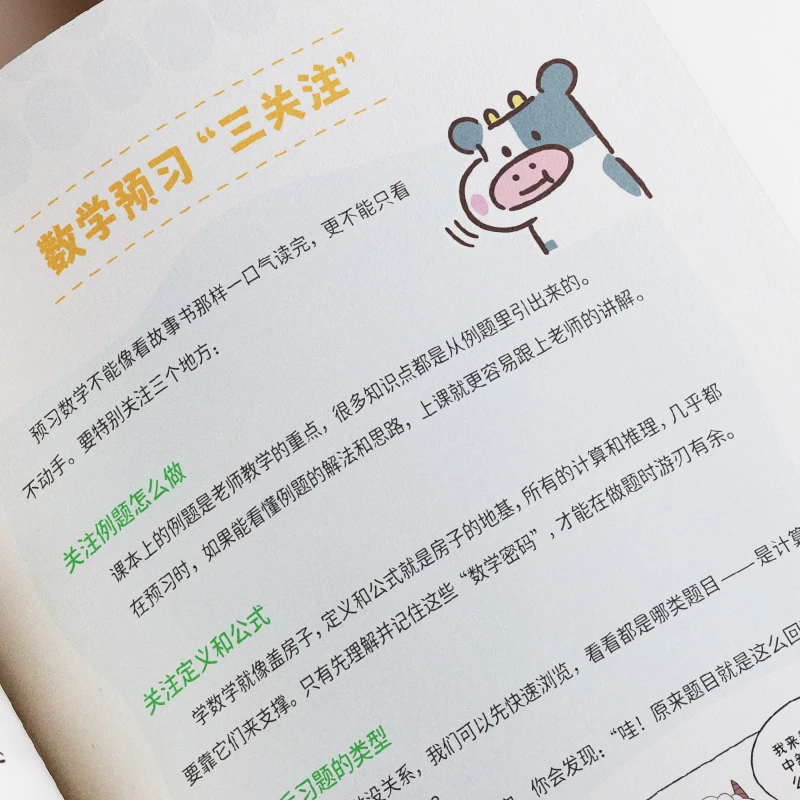 数学预习“三关注”
预习数学不能像看故事书那样一口气读完，更不能只看
不动手。要特别关注三个地方：
关注例题怎么做
课本上的例题是老师教学的重点，很多知识点都是从例题里引出来的。
在预习时，如果能看懂例题的解法和思路，上课就更容易跟上老师的讲解。
关注定义和公式
学数学就像盖房子，定义和公式就是房子的地基，所有的计算和推理，几乎都
要靠它们来支撑。只有先理解并记住这些“数学密码”，才能在做题时游刃有余。
习题的类型
没关系，我们可以先快速浏览，看看都是哪类题目——是计算
你会发现：“哇！原来题目就是这么回
我来
中